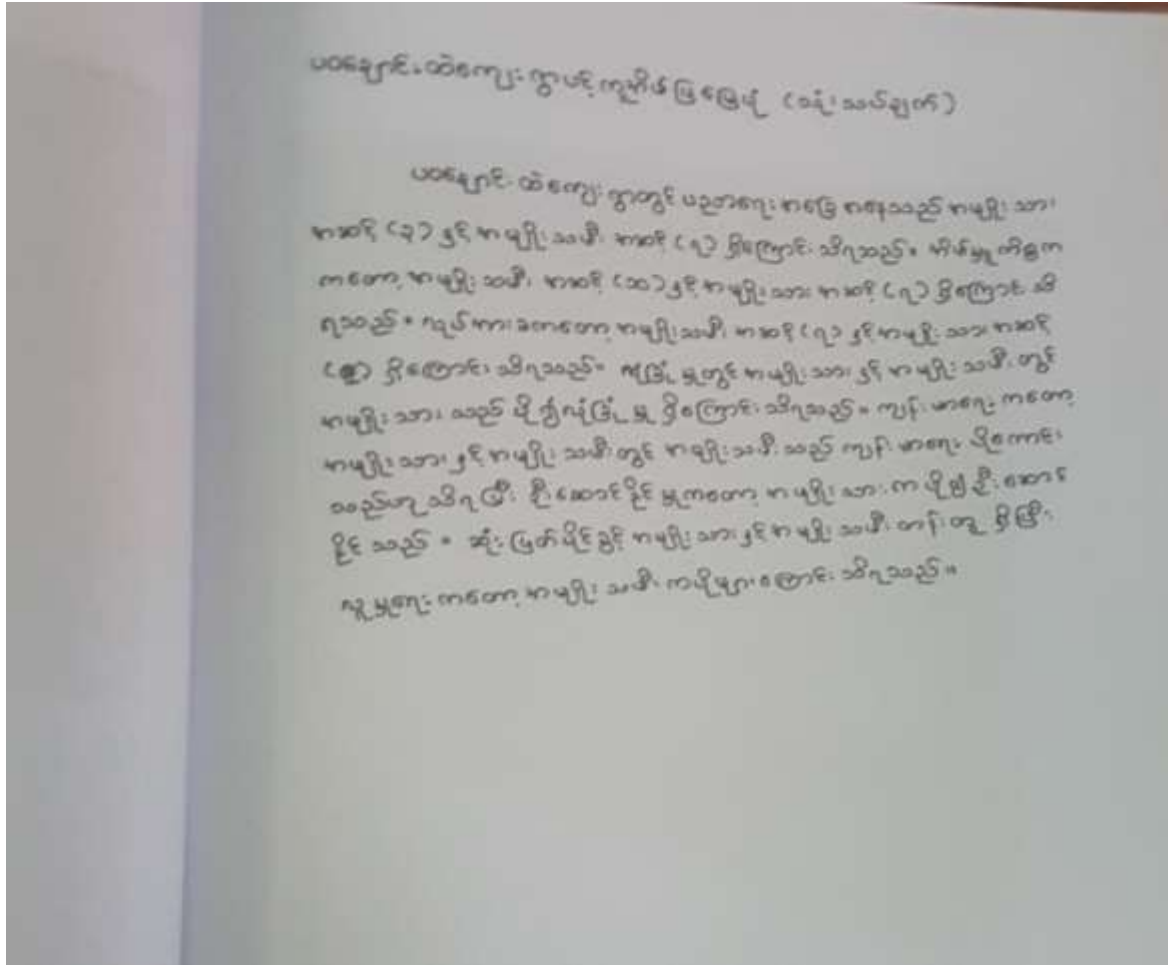 ပဝချောင်းထဲကျေးရွာပင့်ကူအိမ်ပြမြေပုံ (သုံးသပ်ချက်)
ပဝချောင်းထဲကျေးရွာတွင် ပညာရေးအခြေအနေသည် အမျိုးသား
အဆင့် (၃) နှင့် အမျိုးသမီး အဆင့် (၇) ရှိကြောင်း သိရသည်။ အိမ်မှုကိစ္စက
ကတော့ အမျိုးသမီး အဆင့် (၁၀) နှင့် အမျိုးသား အဆင့် (၇) ရှိကြောင်း သိ
ရသည်။ လူမှုကတော့ အမျိုးသမီး အဆင့် (၇) နှင့် အမျိုးသား အဆင့်
ရှိကြောင်း သိရသည်။ လုံခြုံမှုတွင် အမျိုးသား နှင့် အမျိုးသမီး တွင်
အမျိုးသား သည် ပို၍ လုံခြုံမှု ရှိကြောင်း သိရသည်။ ကျန်းမာရေး ကတော့
အမျိုးသား နှင့် အမျိုးသမီးတွင် အမျိုးသမီးသည် ကျန်းမာရေး ပိုကောင်း
သည်ဟု သိရပြီး ဦးဆောင်နိုင်မှုကတော့ အမျိုးသား က ပို၍ ဦးဆောင်
နိုင်သည်။ ဆုံးဖြတ်ပိုင်ခွင့် အမျိုးသား နှင့် အမျိုးသမီး တန်းတူ ရှိပြီး
လူမှုရေး ကတော့ အမျိုးသမီး ကပိုများကြောင်း သိရသည်။